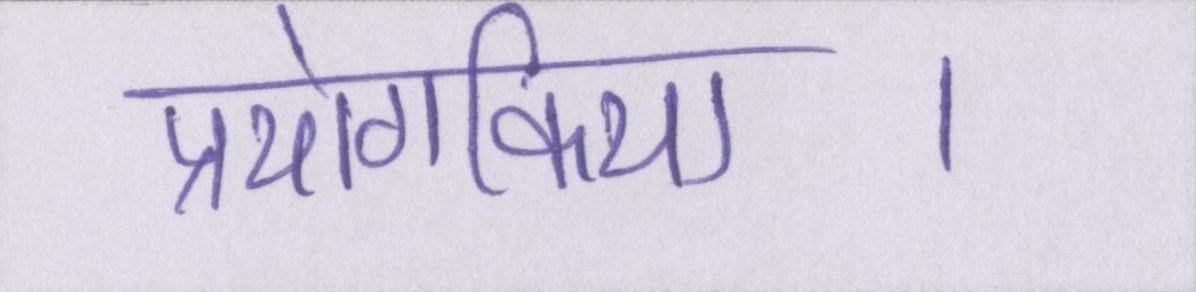 प्रयोगकिया ।